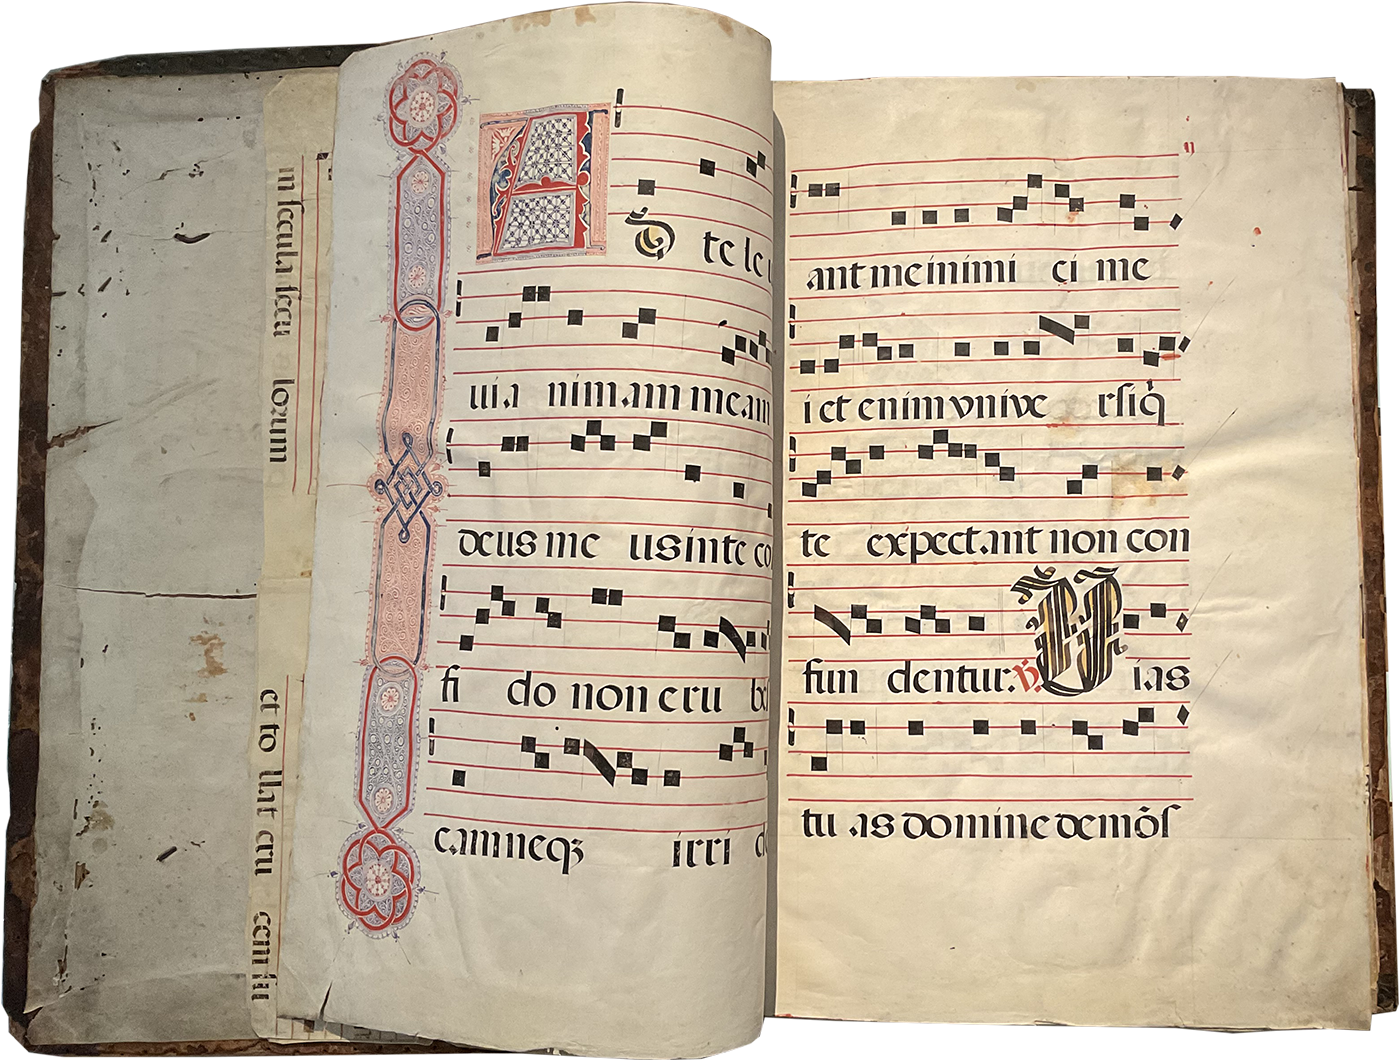 in secula secu lorum
et to llat cru cem su
AD te le
uia nimam meam
deus me us in te co
fi do non eru be
cam neqʒ irri de
ij
ant me inimi ci me
i et enim vnive rsi q̇
te expectant non con
fun dentur. ℣. Vias
tu as domine demõs